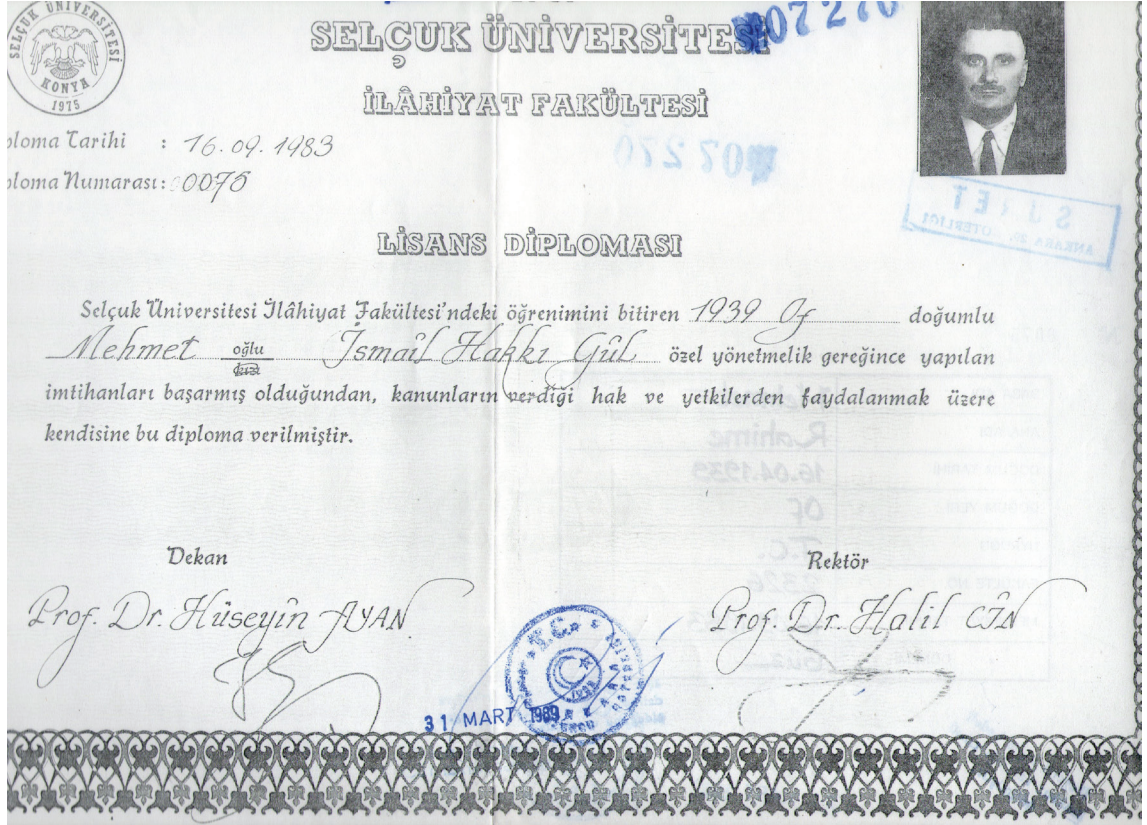 SELÇUK ÜNİVERSİTESİ
KONYA
1975
SELÇUK ÜNİVERSİTESİ
07270
İLÂHİYAT FAKÜLTESİ
ploma Tarihi : 16.09.1983
ploma Numarası: 0075
07270
SURET
ANKARA 29. NOTERLİĞİ
LİSANS DİPLOMASI
Selçuk Üniversitesi İlâhiyat Fakültesi'ndeki öğrenimini bitiren 1939 Of doğumlu
Mehmet oğlu İsmail Hakkı Gül özel yönetmelik gereğince yapılan
kızı
imtihanları başarmış olduğundan, kanunların verdiği hak ve yetkilerden faydalanmak üzere
kendisine bu diploma verilmiştir.
Rahime
16.04.1939
Of
T.C.
Dekan
Rektör
Prof. Dr. Hüseyin AYAN
Prof. Dr. Halil CİN
T.C.
31 MART 1989